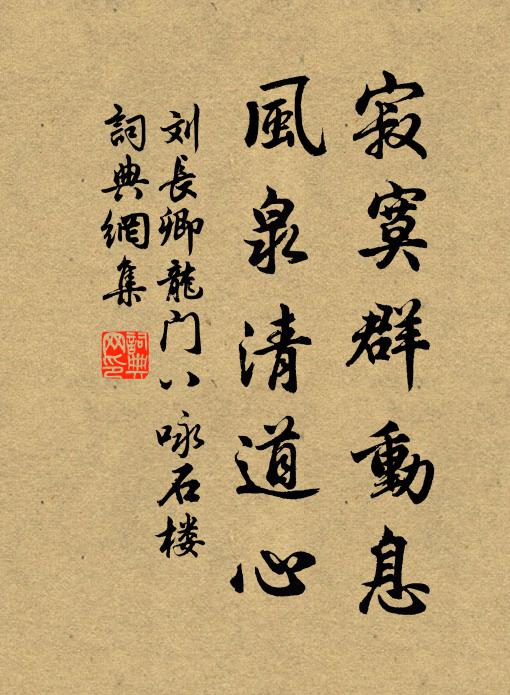 寂寞群動息
風泉清道心
刘長卿龍门八咏石楼
詞典網集
詞典网印